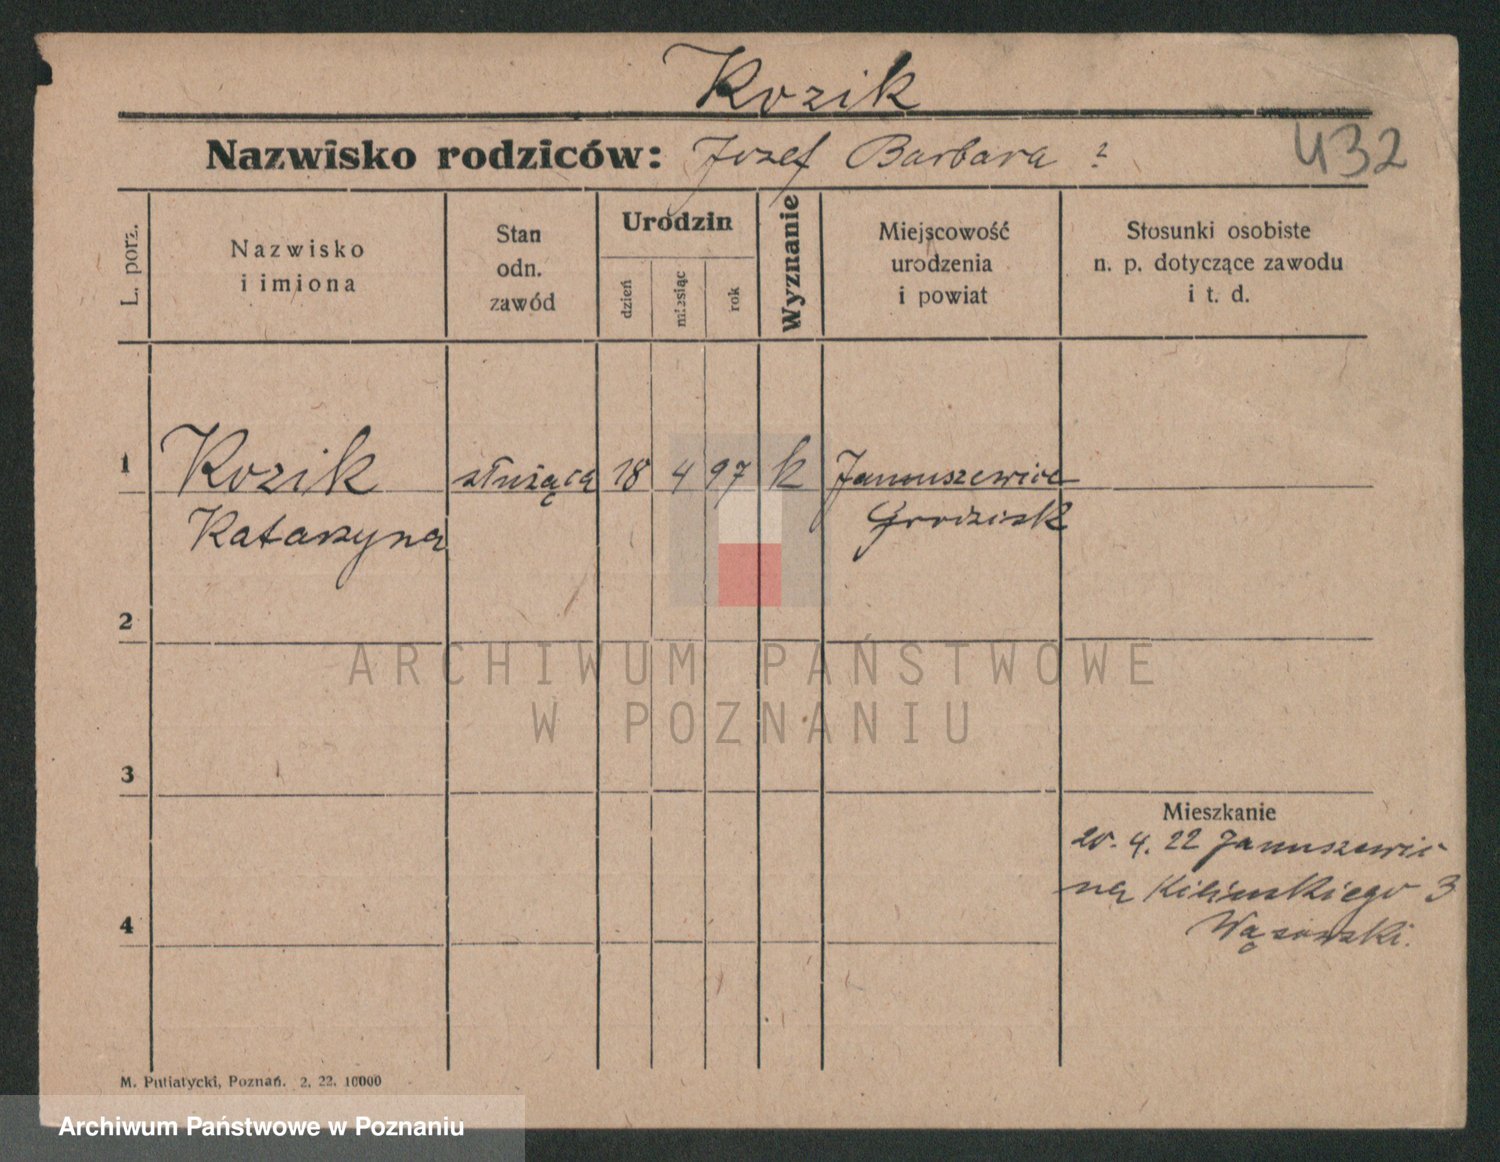 Kozik
Nazwisko rodziców: Jozef Barbara ?
432
L. porz.
Nazwisko
i imiona
Stan
odn.
zawód
Urodzin
dzień
miesiąc
rok
Wyznanie
Miejscowość
urodzenia
i powiat
Stosunki osobiste
n. p. dotyczące zawodu
i t. d.
1 Kozik służąca 18 4 97 k Januszewice
Katarzyna Grodzisk
2
3
Mieszkanie
20. 4. 22 Januszewic
na Kilinskiego 3
Wąsowski.
4
M. Putiatycki, Poznań. 2. 22. 10000
ARCHIWUM PAŃSTWOWE
W POZNANIU
Archiwum Państwowe w Poznaniu